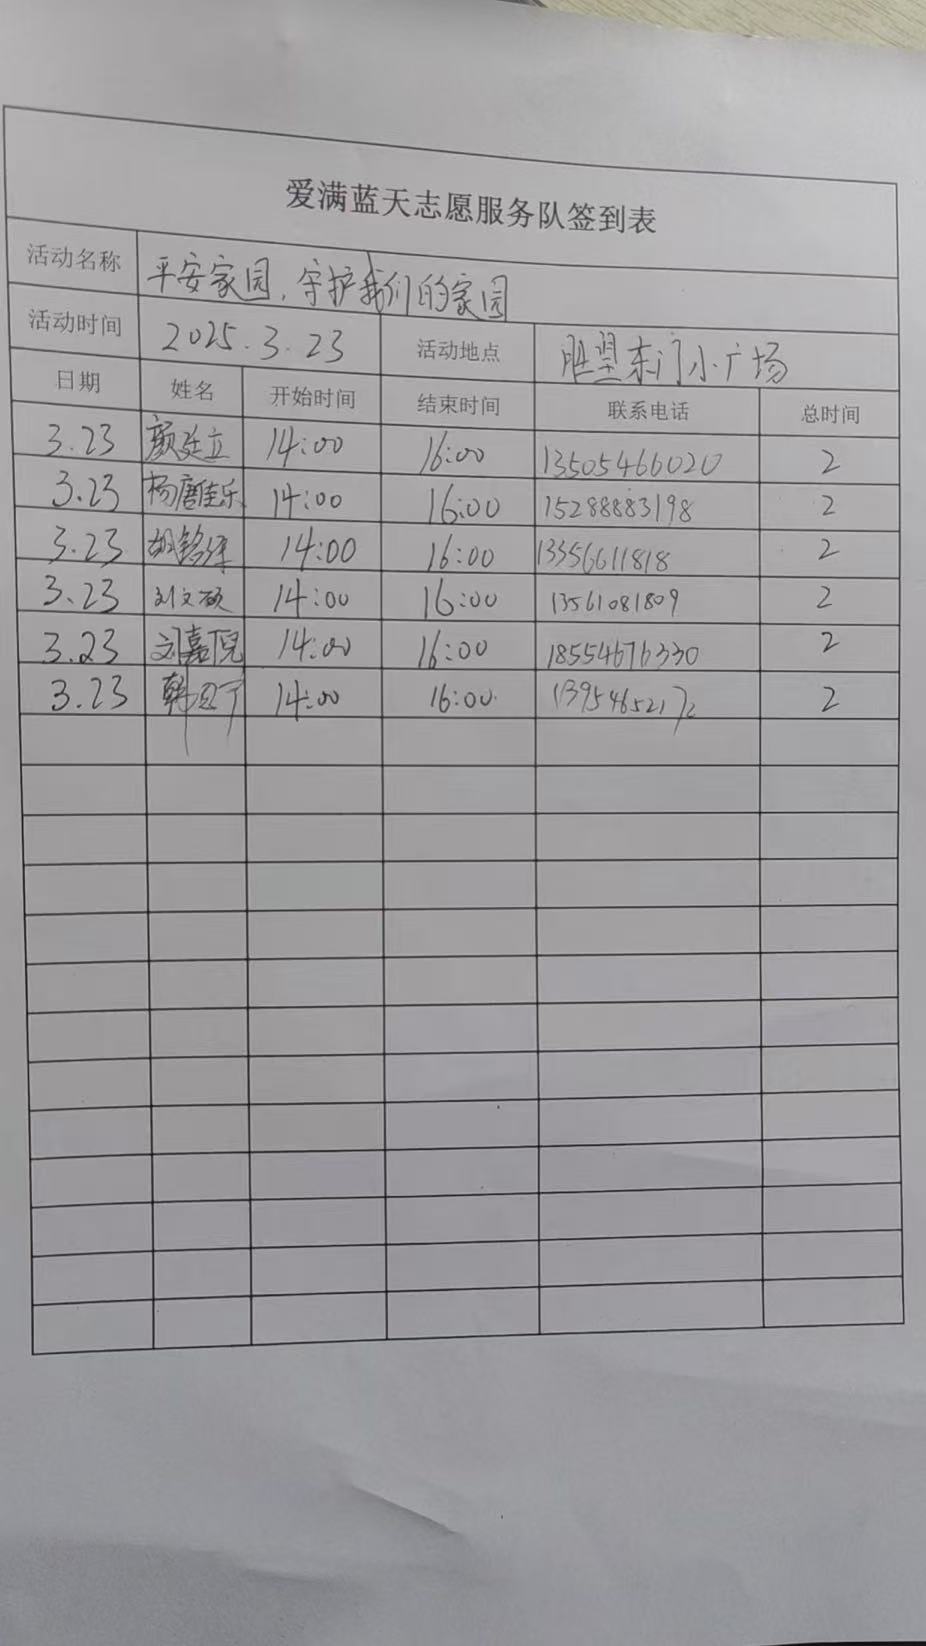 爱满蓝天志愿服务队签到表
活动名称 平安家园,守护我们的家园
活动时间 2025.3.23 活动地点 胜望东门小广场
日期 姓名 开始时间 结束时间 联系电话 总时间
3.23 颜廷立 14:00 16:00 13505466020 2
3.23 杨唐佳乐 14:00 16:00 15288883198 2
3.23 胡铭泽 14:00 16:00 13356611818 2
3.23 刘文硕 14:00 16:00 13561081809 2
3.23 刘嘉倪 14:00 16:00 18554676330 2
3.23 韩 14:00 16:00 13954652172 2